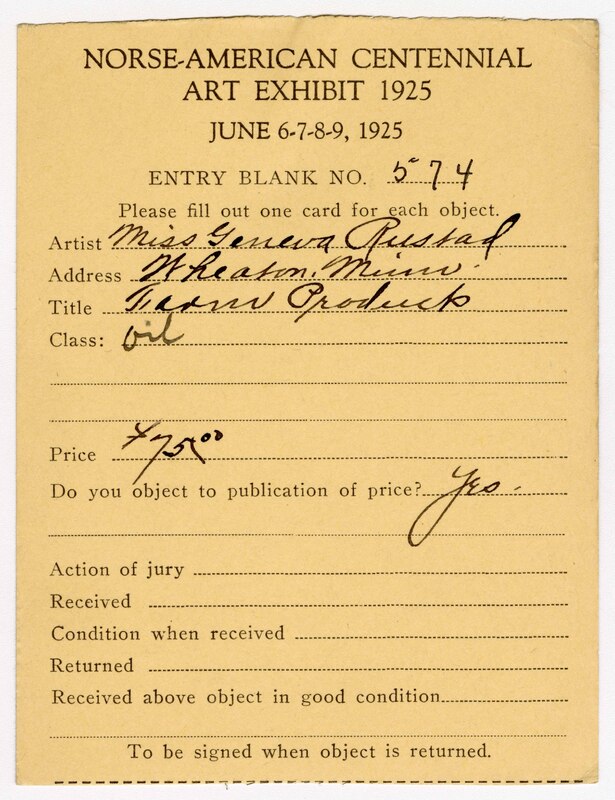 NORSE-AMERICAN CENTENNIAL
ART EXHIBIT 1925
JUNE 6-7-8-9, 1925
ENTRY BLANK NO. 574
Please fill out one card for each object.
Artist Miss Geneva Rustad
Address Wheaton, Minn.
Title Farm Products
Class: Oil
Price $75.00
Do you object to publication of price? Yes.
Action of jury
Received
Condition when received
Returned
Received above object in good condition
To be signed when object is returned.